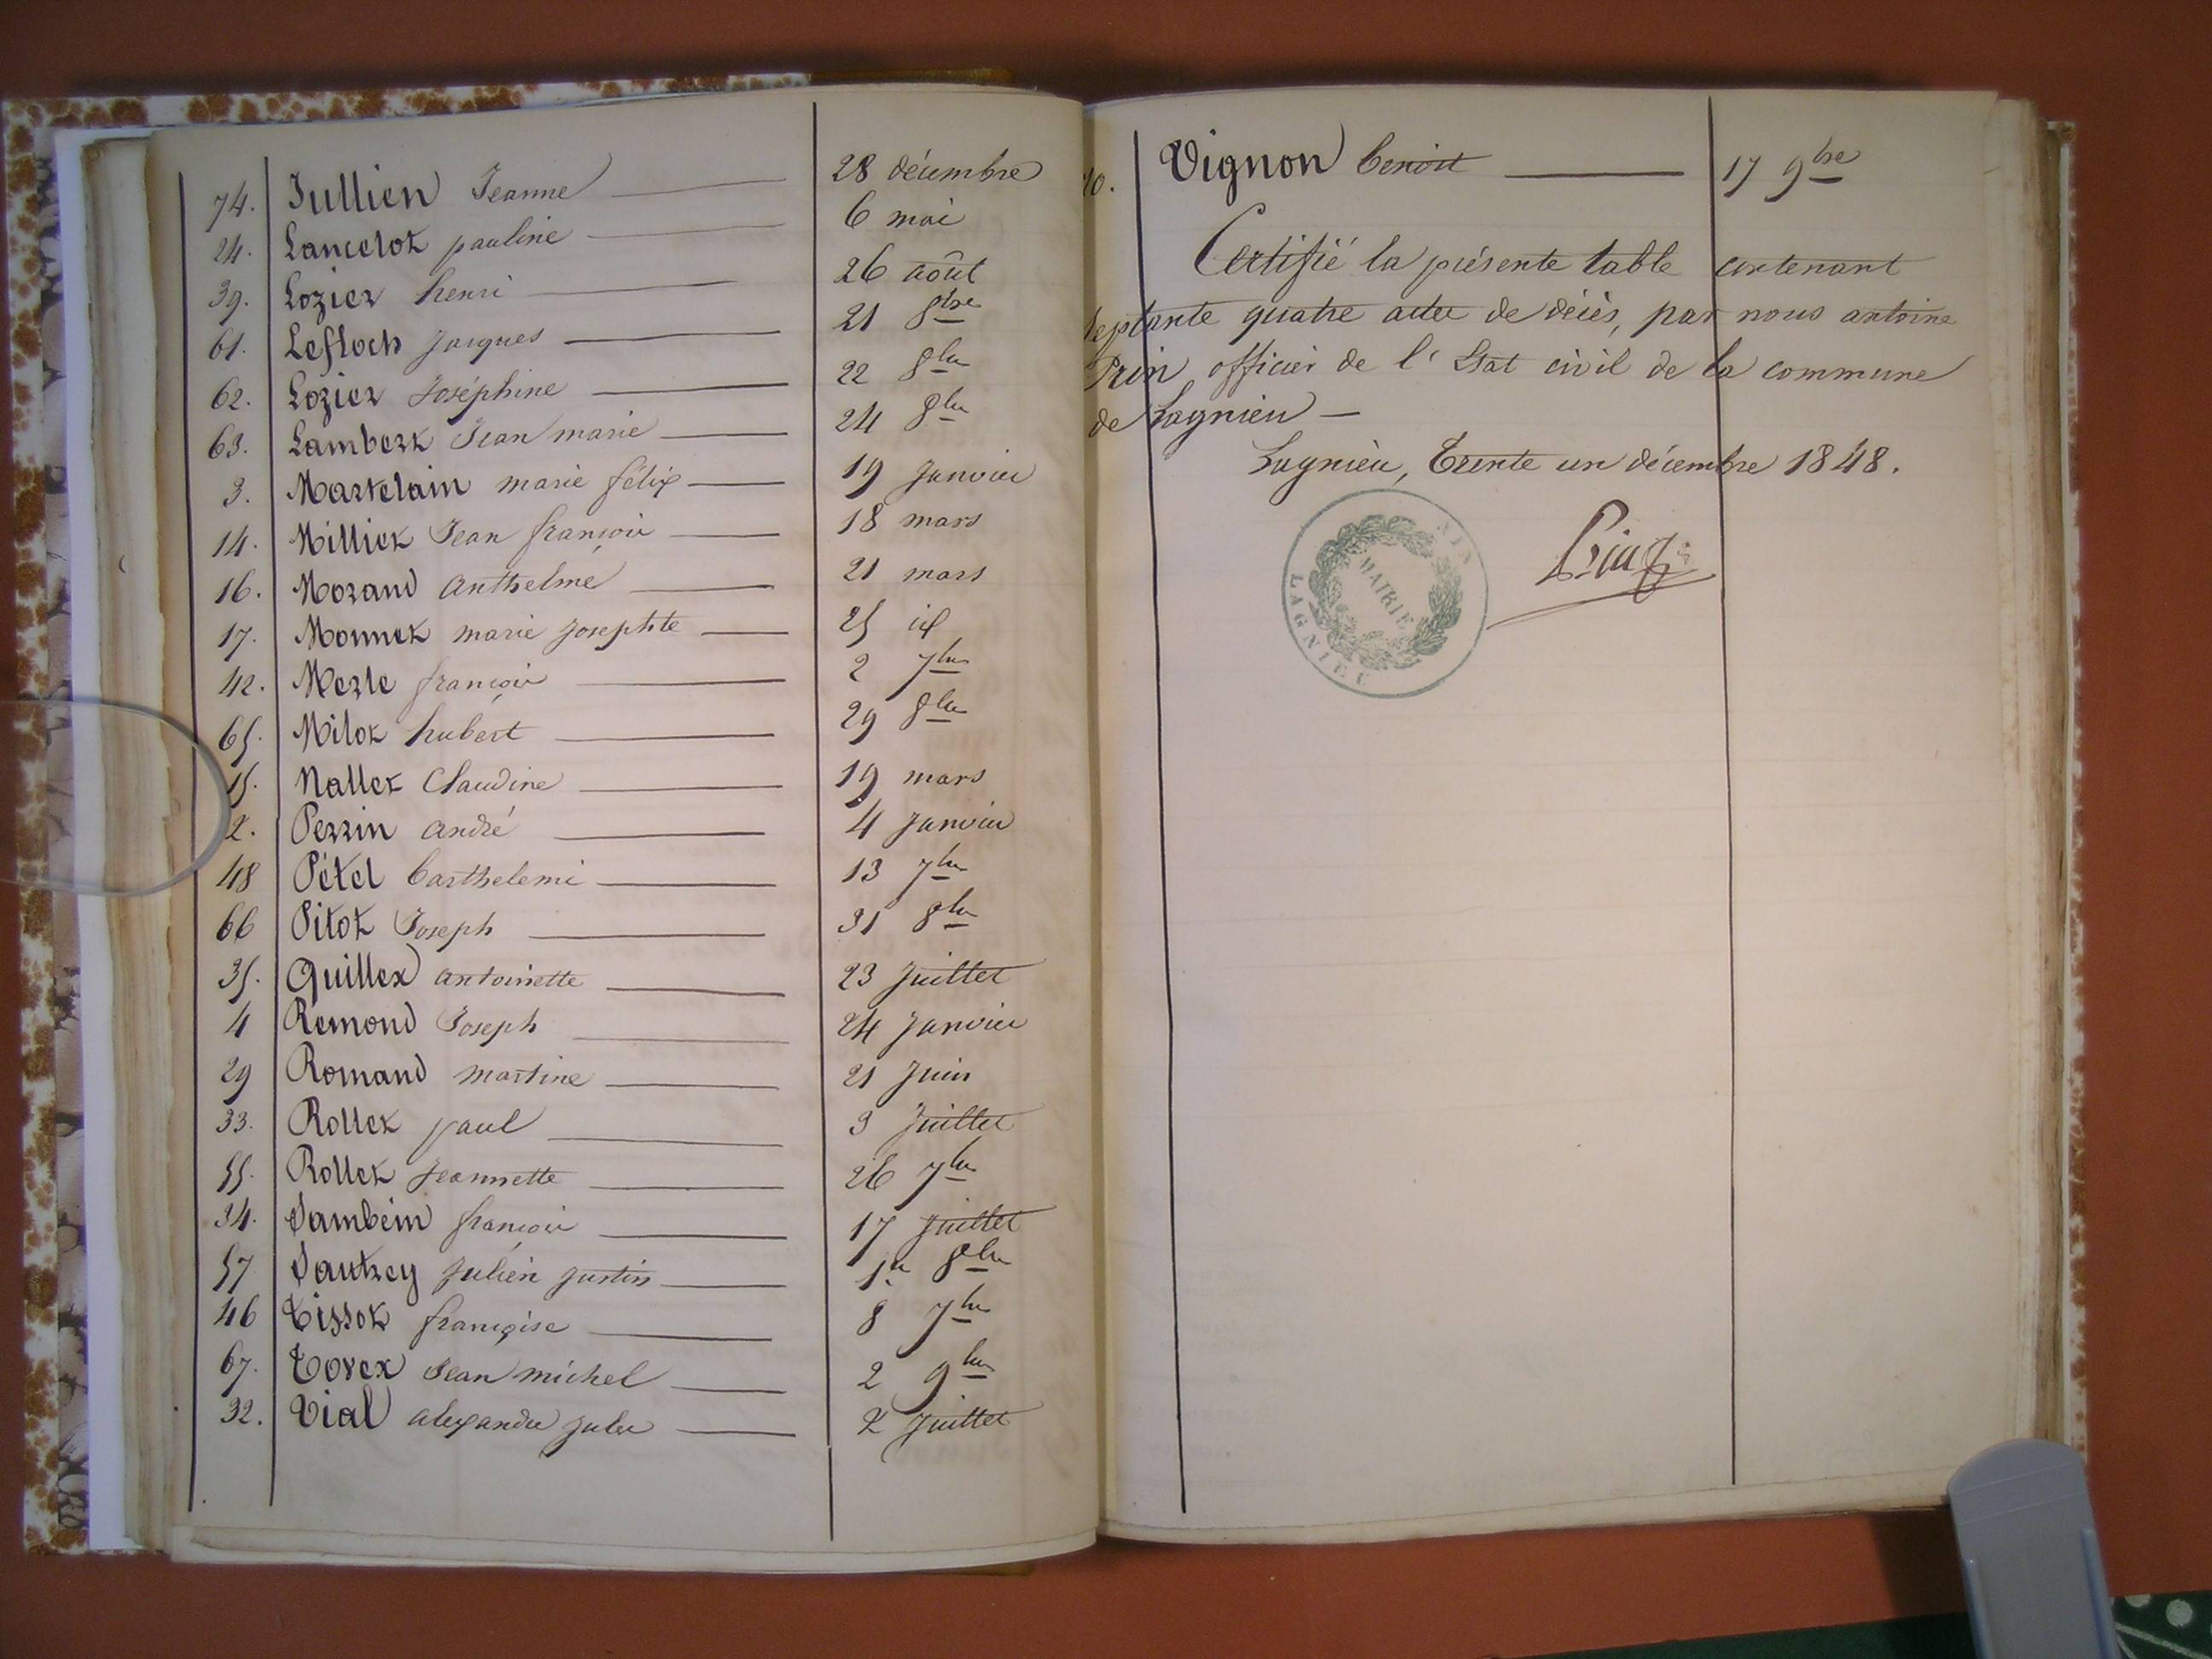 74. Jullien Jeanne 28 décembre
24. Lancelot pauline 6 mai
39. Lozier henri 26 août
61. Lefloch Jacques 21 8bre
62. Lozier Joséphine 22 8bre
63. Lambert Jean marie 24 8bre
3. Martelain marie félix 19 Janvier
14. Milliet Jean françois 18 mars
16. Morand Anthelme 21 mars
17. Monnet marie Josephte 25 id
42. Merle françois 2 7bre
65. Milot hubert 29 8bre
15. Nallet Claudine 19 mars
2. Perrin andré 4 Janvier
48 Pétel barthelemi 13 7bre
66 Pitot Joseph 31 8bre
35. Quillex antoinette 23 Juillet
4 Remond Joseph 24 Janvier
29 Romand martine 21 Juin
33. Rollet paul 3 Juillet
55. Rollet Jeannette 26 7bre
34. Sambein françois 17 Juillet
57 Sautrey Julien Justin 1er 8bre
46 Tissot françoise 8 7bre
67. Torex Jean michel 2 9bre
32. Vial alexandre Jules 2 Juillet
70. Vignon benoit 17 9bre
Certifié la présente table contenant
septante quatre actes de décès, par nous antoine
Prin officier de l'Etat civil de la commune
de Lagnieu
Lagnieu, Trente un décembre 1848.
MAIRIE
LAGNIEU
AIN